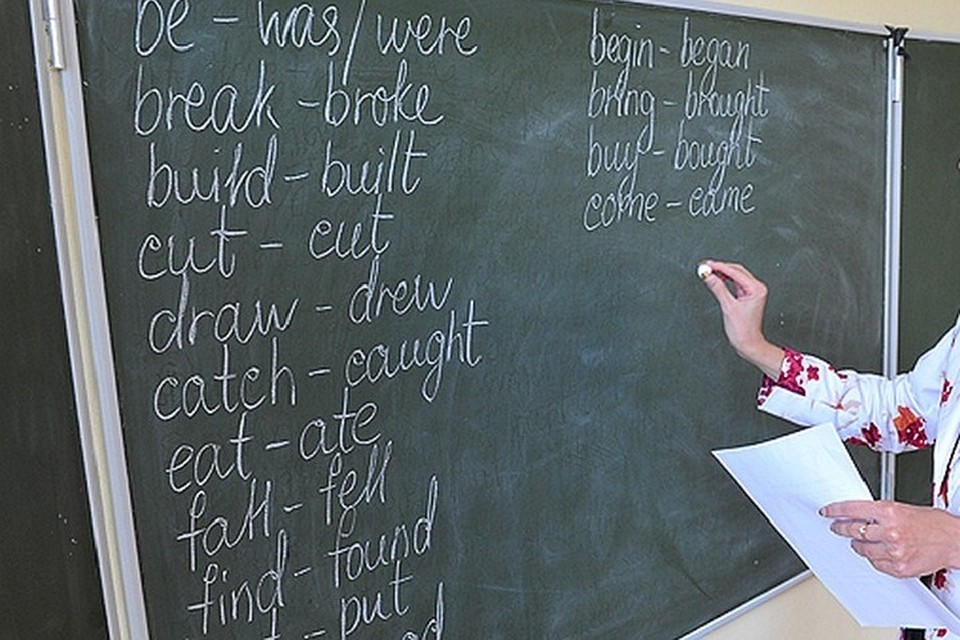 be - was/were
break - broke
build - built
cut - cut
draw - drew
catch - caught
eat - ate
fall - fell
find - found
- put
begin - began
bring - brought
buy - bought
come - came